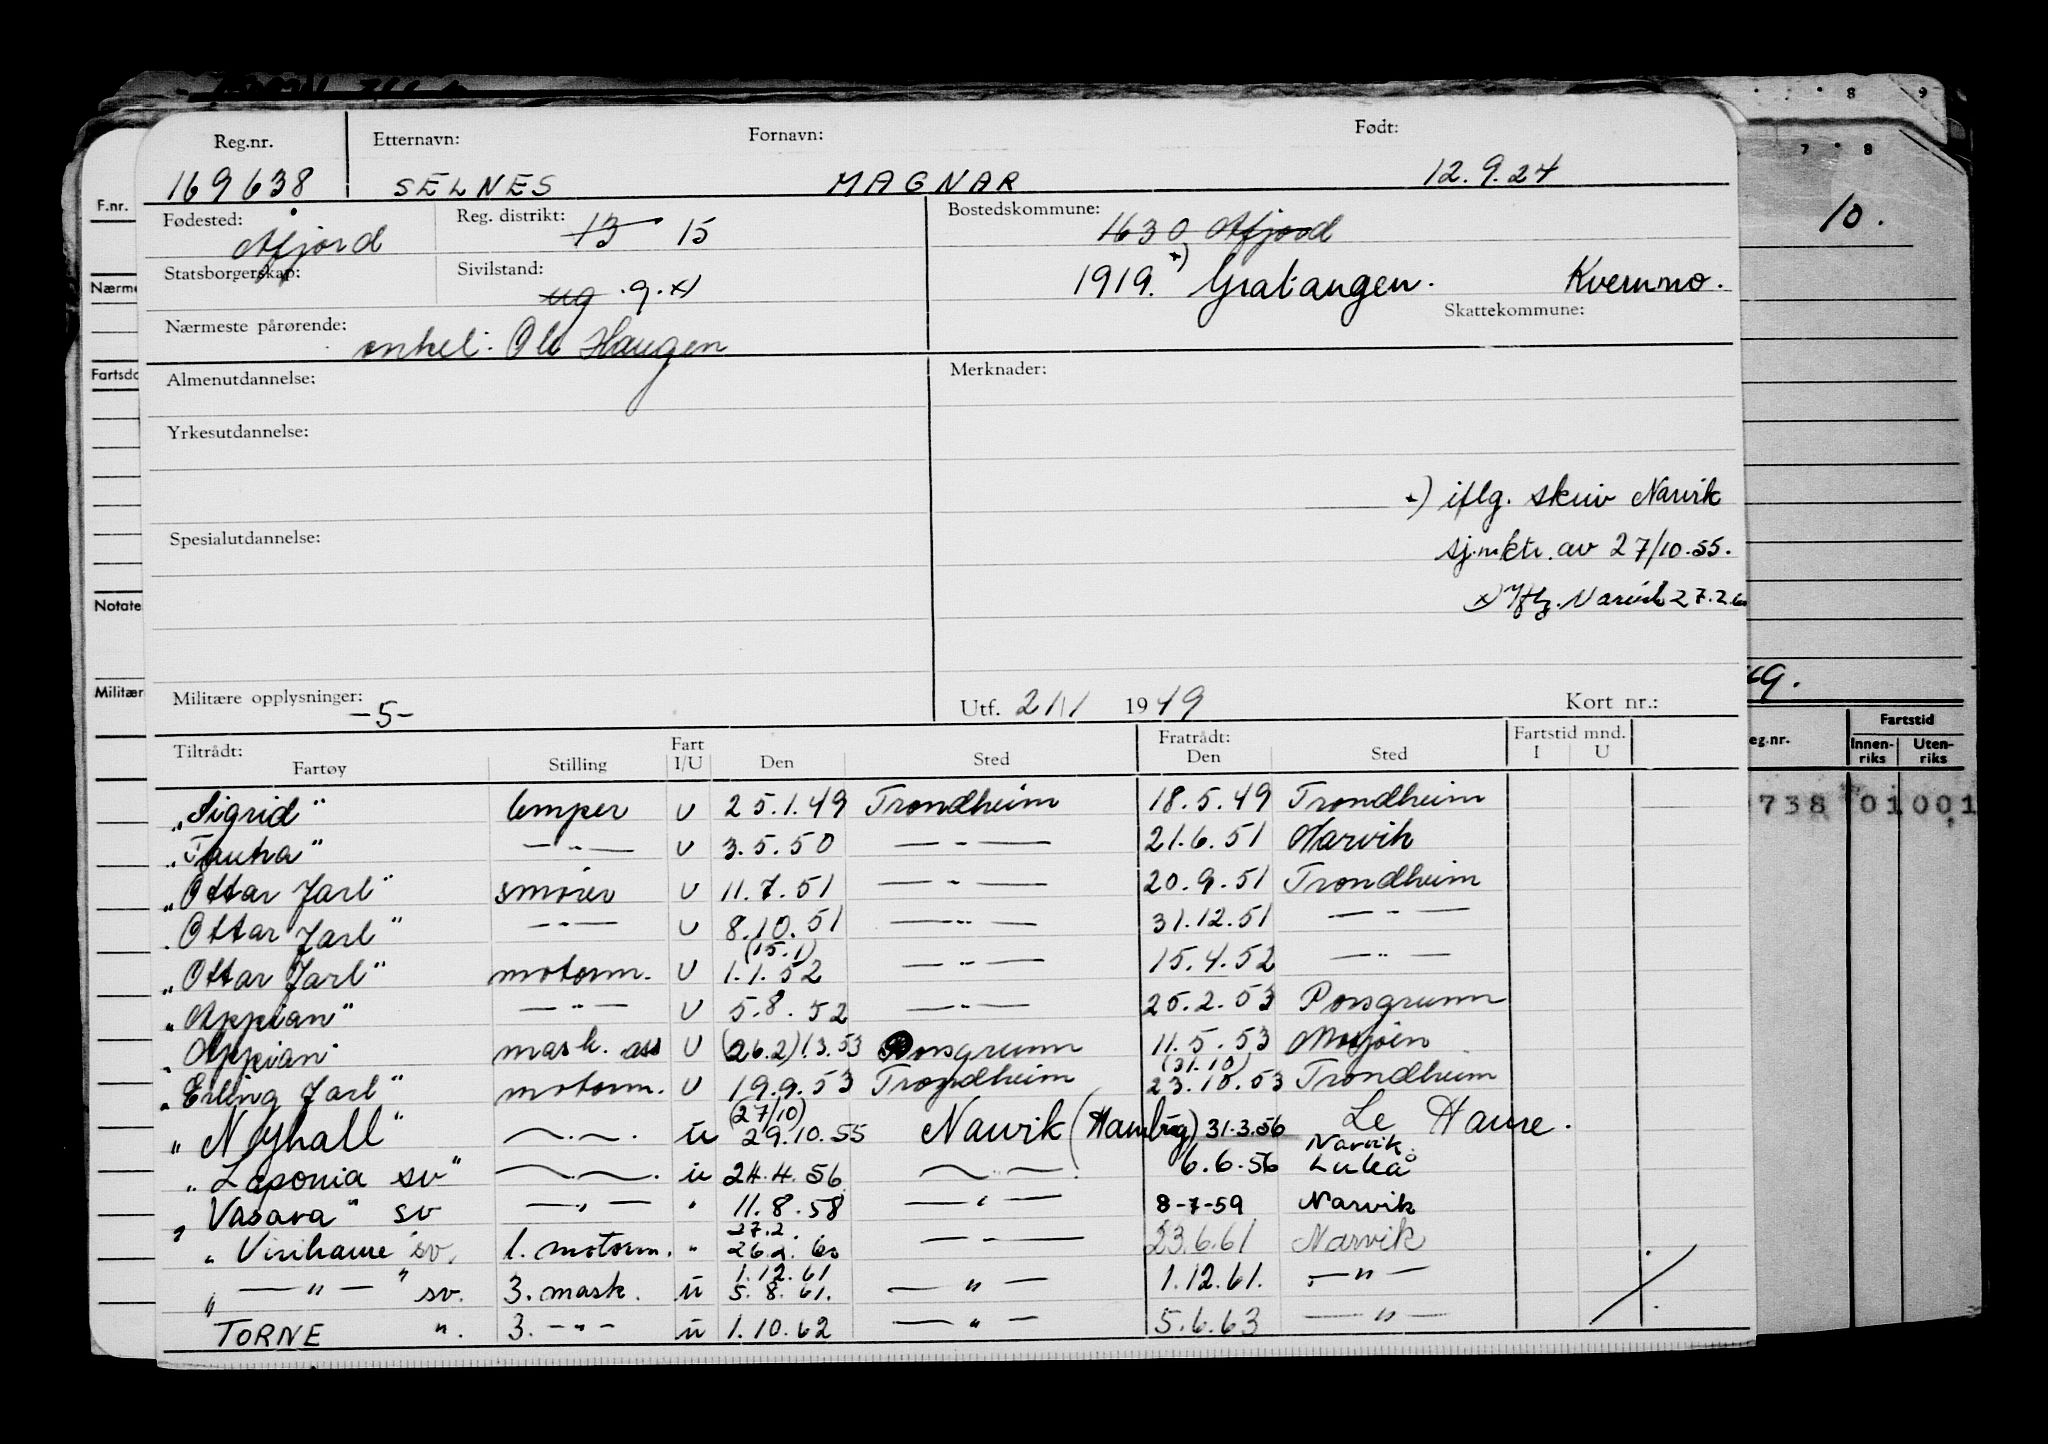 Reg.nr. Etternavn: Fornavn: Født:
169638 SELNES MAGNAR 12.9.24
Fødested: Åfjord Reg. distrikt: 13 15 Bostedskommune: 1630 Åfjord
Statsborgerskap: Sivilstand: ug .g.x) 1919. x) Gratangen. Kvernmo.
Skattekommune:
Nærmeste pårørende: onkel: Ole Haugen
Almenutdannelse: Merknader:
Yrkesutdannelse:
x) iflg. skriv Narvik
Spesialutdannelse: sj.mktr. av 27/10.55.
x) Iflg. Narvik 27.2.60
Militære opplysninger: -5- Utf. 21/1 1949 Kort nr.:
Tiltrådt: Fart Fratrådt: Fartstid mnd.
Fartøy Stilling I/U Den Sted Den Sted I U
"Sigrid" lemper U 25.1.49 Trondheim 18.5.49 Trondheim
"Tautra" — " — U 3.5.50 — " — 21.6.51 Narvik
"Ottar Jarl" smører U 11.7.51 — " — 20.9.51 Trondheim
"Ottar Jarl" — " — U 8.10.51 — " — 31.12.51 — " —
(15.1)
"Ottar Jarl" motorm. U 1.1.52 — " — 15.4.52 — " —
"Appian" — " — U 5.8.52 — " — 25.2.53 Porsgrunn
"Appian" mask. ass U (26.2) 1.3.53 Porsgrunn 11.5.53 Mosjøen
(31.10)
"Erling Jarl" motorm. U 19.9.53 Trondheim 23.10.53 Trondheim
(27/10)
"Nyhall" — " — u 29.10.55 Narvik (Hamburg) 31.3.56 Le Havre.
Narvik
"Laponia" sv — " — u 24.4.56 — " — 6.6.56 Luleå
"Vasara" sv — " — " 11.8.58 — " — 8-7-59 Narvik
27.2.
"Virihaure" sv. 1. motorm. " 26.2.60 — " — 23.6.61 Narvik
1.12.61
" — " — " sv. 3. mask. u 5.8.61. — " — 1.12.61. — " —
TORNE " . 3. - " - u 1.10.62 — " — 5.6.63 — " —
F.nr.
Nærme
Fartsdo
Notate
Militær
8 9
7 8
10.
ug.
eg.nr. Fartstid
Innen-riks Uten-riks
738 01 001